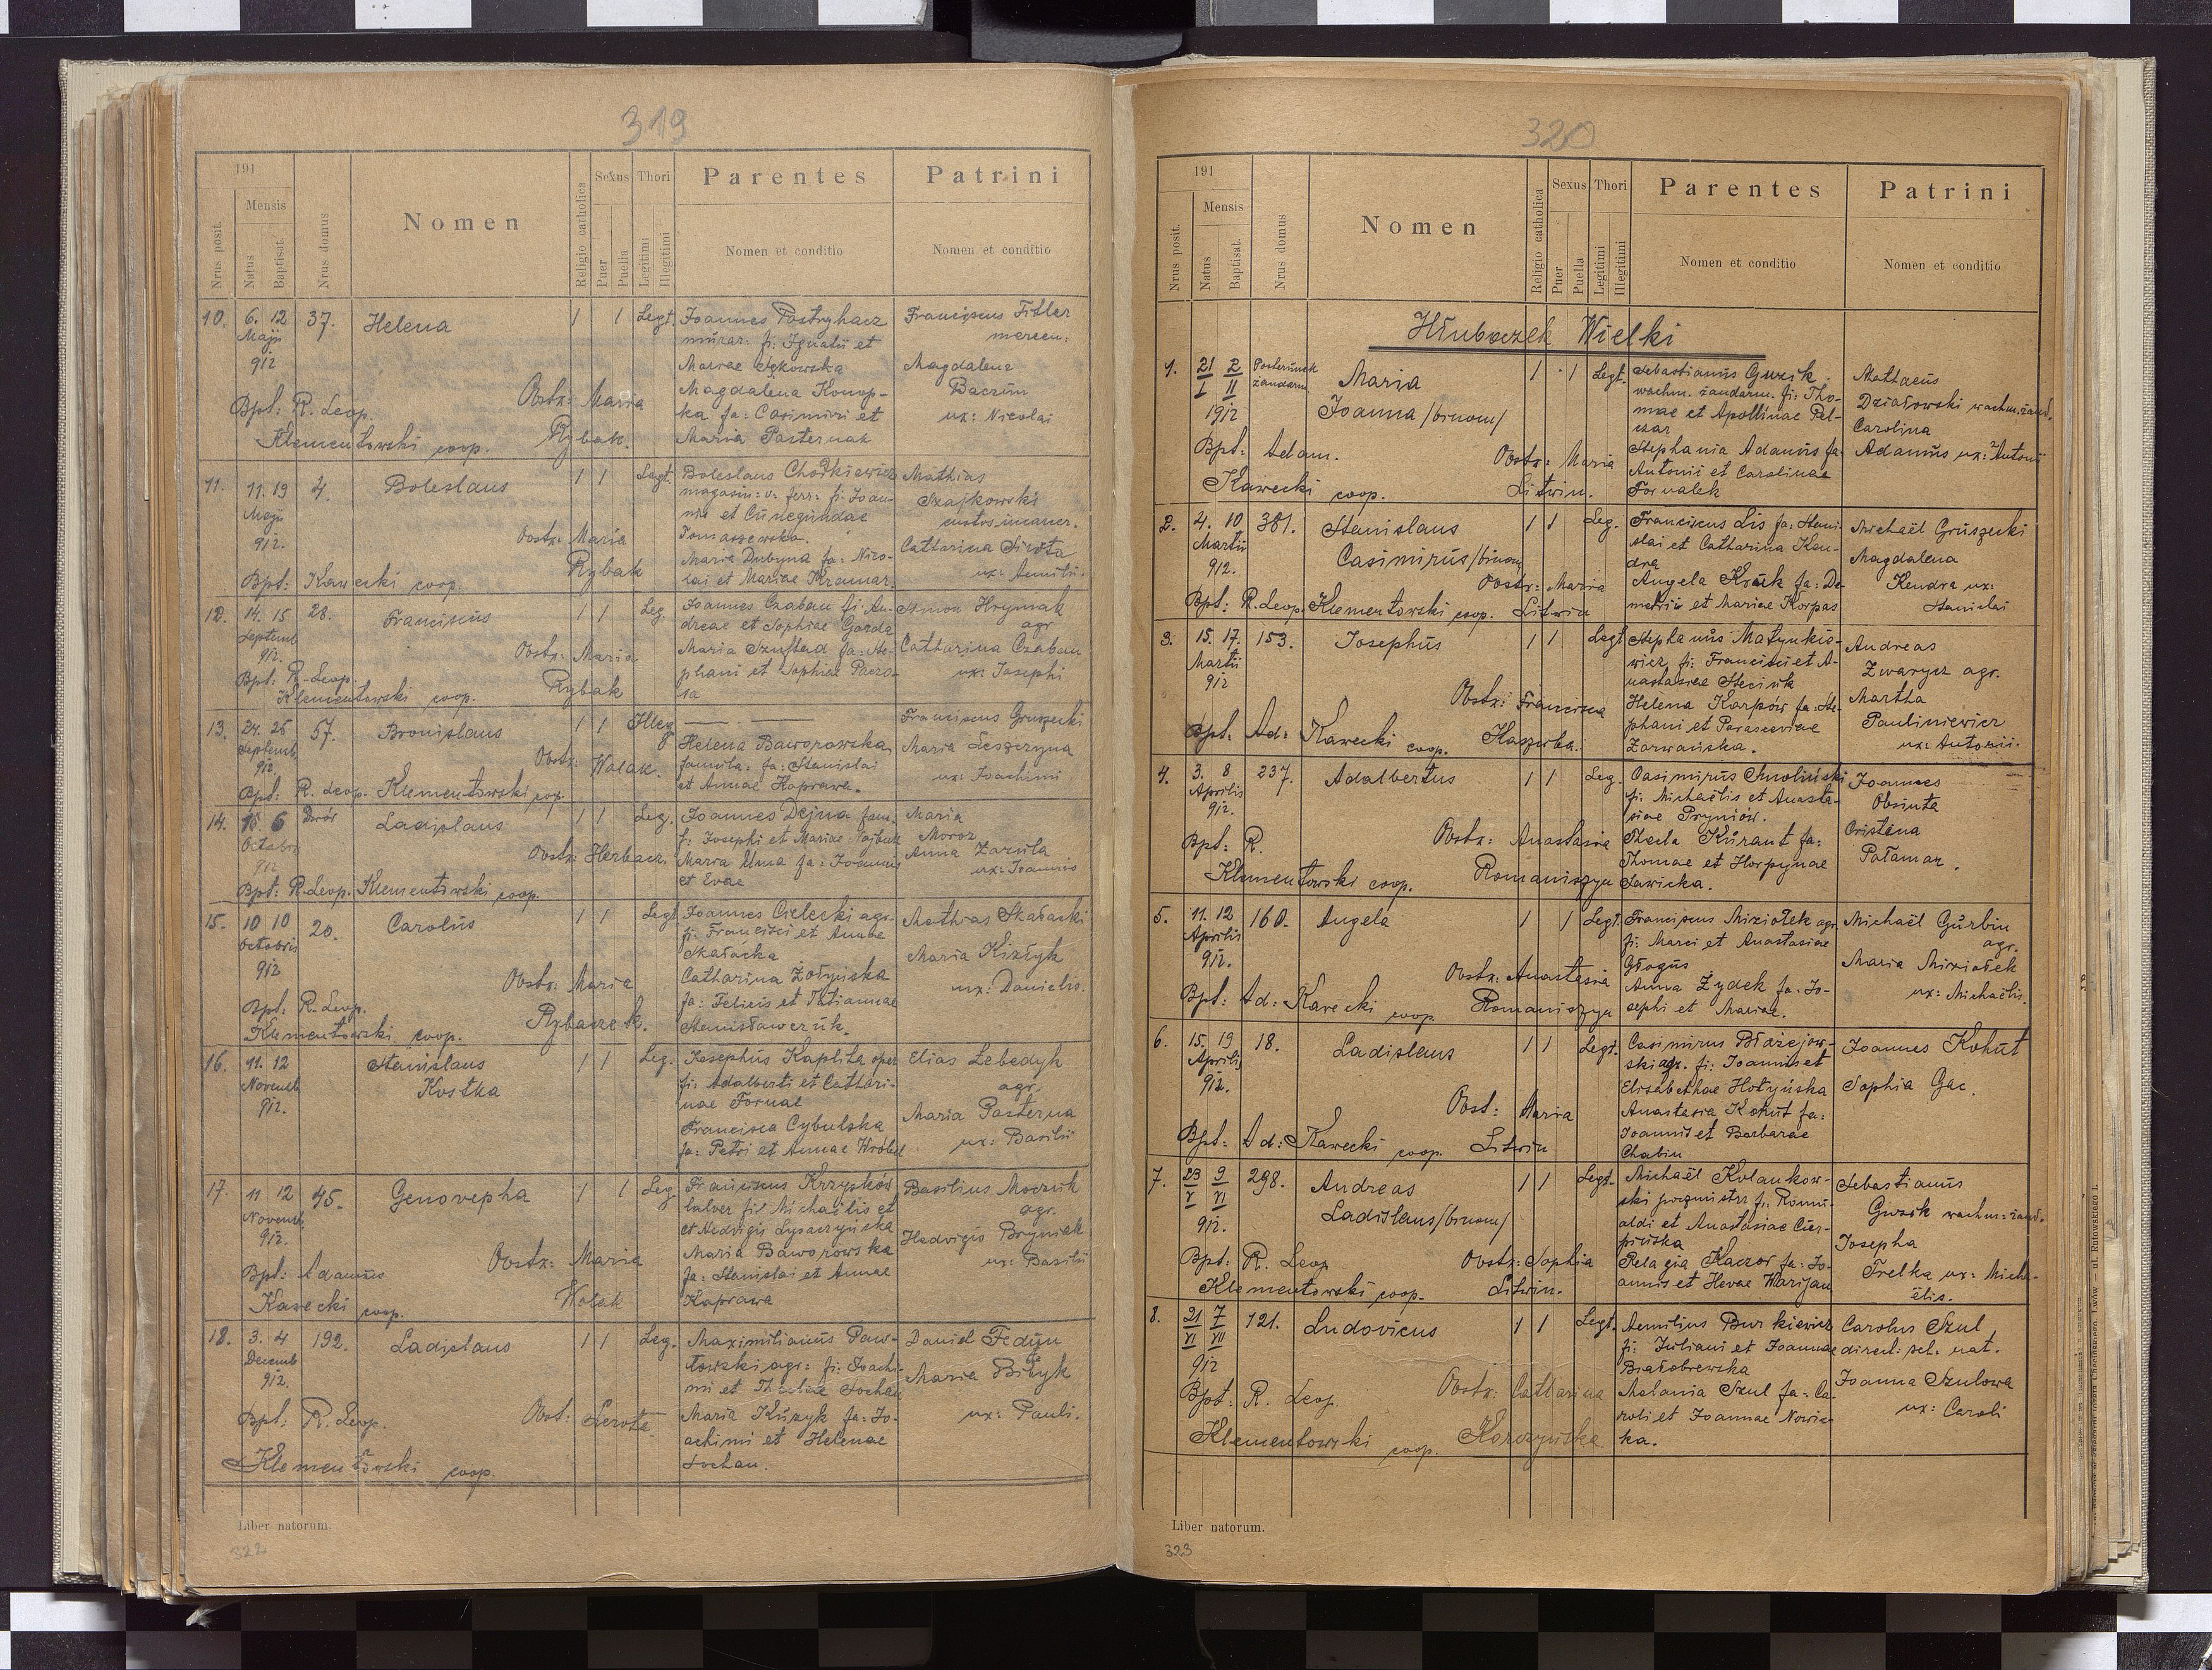 319
191
Mensis
Nrus posit.
Natus
Baptisat.
Nrus domus
Nomen
Religio catholica
Sexus
Puer
Puella
Thori
Legitimi
Illegitimi
Parentes
Nomen et conditio
Patrini
Nomen et conditio
10. 6. 12 37. Helena 1 1 Legt. Joannes Postryhacz Franciscus Fitler
Maji murar. fi: Ignatii et mercen:
912 Magdalena
Obstx: Maria Magdalena Konop- Baczun
Bpt: R. Leop. ka fa: Casimiri et ux: Nicolai
Klementowski coop. Rybak. Maria Pasternak
11. 11. 19 4. Boleslaus 1 1 Legt. Boleslaus Chodkiewicz Mathias
Maji magasin: v. ferr: fi: Joan- Szajkowski
912. nis et Cunegundae custos incarcer.
Obstx: Maria Tomaszewska. Catharina Sirota
Rybak Maria Dubyna fa: Nico- ux: Aemilii.
Bpt: Kawecki coop. lai et Mariae Kramar.
12. 14. 15 28. Franciscus 1 1 Leg. Joannes Czaban fi: An- Simon Hryniak
Septemb dreae et Sophiae Gorda agr
912. Obstx: Maria Maria Sznftad fa: Ste- Catharina Czaban
Bpt: R. Leop. Rybak phani et Sophiae Paczo- ux: Josephi
Klementowski coop. la
13. 24. 26 57. Bronislaus 1 1 Illeg Franciscus Gruszecki
Septemb. Helena Baworowska Maria Leszczyna
912. Obstx: Wolak. famula. fa: Stanislai ux: Joachimi
Bpt: R. Leop. Klementowski coop. et Annae Koprawa.
14. 6 Dwór Ladislaus 1 1 Leg. Joannes Dejna fam. Maria
Octobris fi: Josephi et Mariae Moroz
912 Obstx: Herbacz. Maria Uma fa: Joannis Anna Zarula
Bpt: R. Leop. Klementowski coop. et Evae ux: Joannis
15. 10 10 20. Carolus 1 1 Legt. Joannes Cielecki agr. Mathias Skałacki
Octobris fi: Francisci et Annae
912 Skałacka Maria Kizłyk
Obstx: Maria Catharina Żołyńska ux: Danielis.
Bpt: R. Leop. fa: Felicis et Tatiannae
Klementowski coop. Rybaczek. Stanisławczuk.
16. 11. 12 Stanislaus 1 1 Leg. Josephus Kaplita oper Elias Lebedyk
Novemb Kostka fi: Adalberti et Cathari- agr.
912. nae Fornal Maria Pasterna
Francisca Cybulska ux: Basilii
fa: Petri et Annae Wróbel
17. 11 12 45. Genovepha 1 1 Leg. Franciscus Krzysków Basilius Moczuk
Novemb. fil Michaëlis et agr.
912. et Hedvigis Lysaczyńska Hedvigis Bryniak
Obstx: Maria Maria Baworowska ux: Basilii
Bpt: Adamus fa: Stanislai et Annae
Kawecki coop. Wolak Koprawa
18. 3. 4 192. Ladislaus 1 1 Leg. Maximilianus Paw- Daniel Fedyn
Decemb łowski agr: fi: Joachi-
912. mi et Theclae Sochan Maria Biłyk
Bpt: R. Leop. Obst: Serota Maria Kuzyk fa: Jo- ux: Pauli.
achimi et Helenae
Klementowski coop. Sochan.
Liber natorum.
322
320
191
Mensis
Nrus posit.
Natus
Baptisat.
Nrus domus
Nomen
Religio catholica
Sexus
Puer
Puella
Thori
Legitimi
Illegitimi
Parentes
Nomen et conditio
Patrini
Nomen et conditio
Hłuboczek Wielki
1. 21 2 Posterunek Maria 1 1 Legt. Sebastianus Guzik Mathaeus
I II żandarm wachm. żandarm. fi: Tho- Działowski wachm. żand.
1912 Joanna /binom/ mae et Apollinae Pel- Carolina
czar
Bpt: Adam. Obstx: Maria Stephania Adamus fa: Adamus ux: Antonii
Kawecki coop. Litwin. Antonii et Carolinae
Fornalek
2. 4. 10 381. Stanislaus 1 1 Leg. Franciscus Lis fa: Stani- Michaël Gruszecki
Martii Casimirus /binom slai et Catharina Ken- Magdalena
912. dra Kendra ux:
Obstx: Maria Angela Kruk fa: De- Stanislai
Bpt: R. Leop. Klementowski coop. Litwin metrii et Mariae Korpas
3. 15. 17. 153. Josephus 1 1 Legt Stephanus Matynkie- Andreas
Martii wicz fi: Francisci et A- Zwarycz agr.
912 nastasiae Steciuk
Obstx: Francisca Helena Karpow fa: Ste- Martha
Bpt. Ad: Kawecki coop. Haszczba. phani et Parasceviae Pauliniewicz
Zarwańska. ux: Antonii.
4. 3. 8 237. Adalbertus 1 1 Leg. Casimirus Smoliński Joannes
Aprilis fi: Michaëlis et Anasta- Obsiuta
912. siae Pryniów.
Bpt: R. Obstx: Anastasia Thecla Kurant fa: Cristina
Klementowski coop. Romaniszyn Thomae et Horpynae Pałamar.
Sawicka.
5. 11. 12 160. Angela 1 1 Legt. Franciscus Miziołek agr Michaël Gurbin
Aprilis fi: Marci et Anastasiae agr.
912. Głogus Maria Miziołek
Obstx: Anastasia Anna Zydek fa: Jo- ux: Michaëlis.
Bpt: Ad: Kawecki coop. Romaniszyn sephi et Mariae.
6. 15. 19 18. Ladislaus 1 1 Legt. Casimirus Błażejow- Joannes Kohut
Aprilis ski agr. fi: Joannis et
912. Elisabethae Hołyńska Sophia Gac.
Obst: Maria Anastasia Kohut fa:
Bpt: Ad: Kawecki coop. Litwin Joannis et Barbarae
Chabin
7. 23 9 298. Andreas 1 1 Legt. Michaël Kolankow- Sebastianus
V VI ski fi: Romu- Guzik wachm: żand.
912. Ladislaus /binom/ aldi et Anastasiae Cier- Josepha
pińska
Bpt: R. Leop Obstx: Sophia Pelagia Kaczor fa: Jo- Trelka ux: Micha-
Klementowski coop. Litwin. annis et Hevae Marijan ëlis.
8. 21 7 121. Ludovicus 1 1 Legt. Aemilius Burkiewicz Carolus Szul
VI VII fi: Juliani et Joannae direct: scl. nat.
912 Białobrewska
Bpt: R. Leop. Obstx: Catharina Melania Szul fa: Ca- Joanna Szulowa
roli et Joannae Nowic- ux: Caroli
Klementowski coop. Korczyńska ka.
Liber natorum.
323